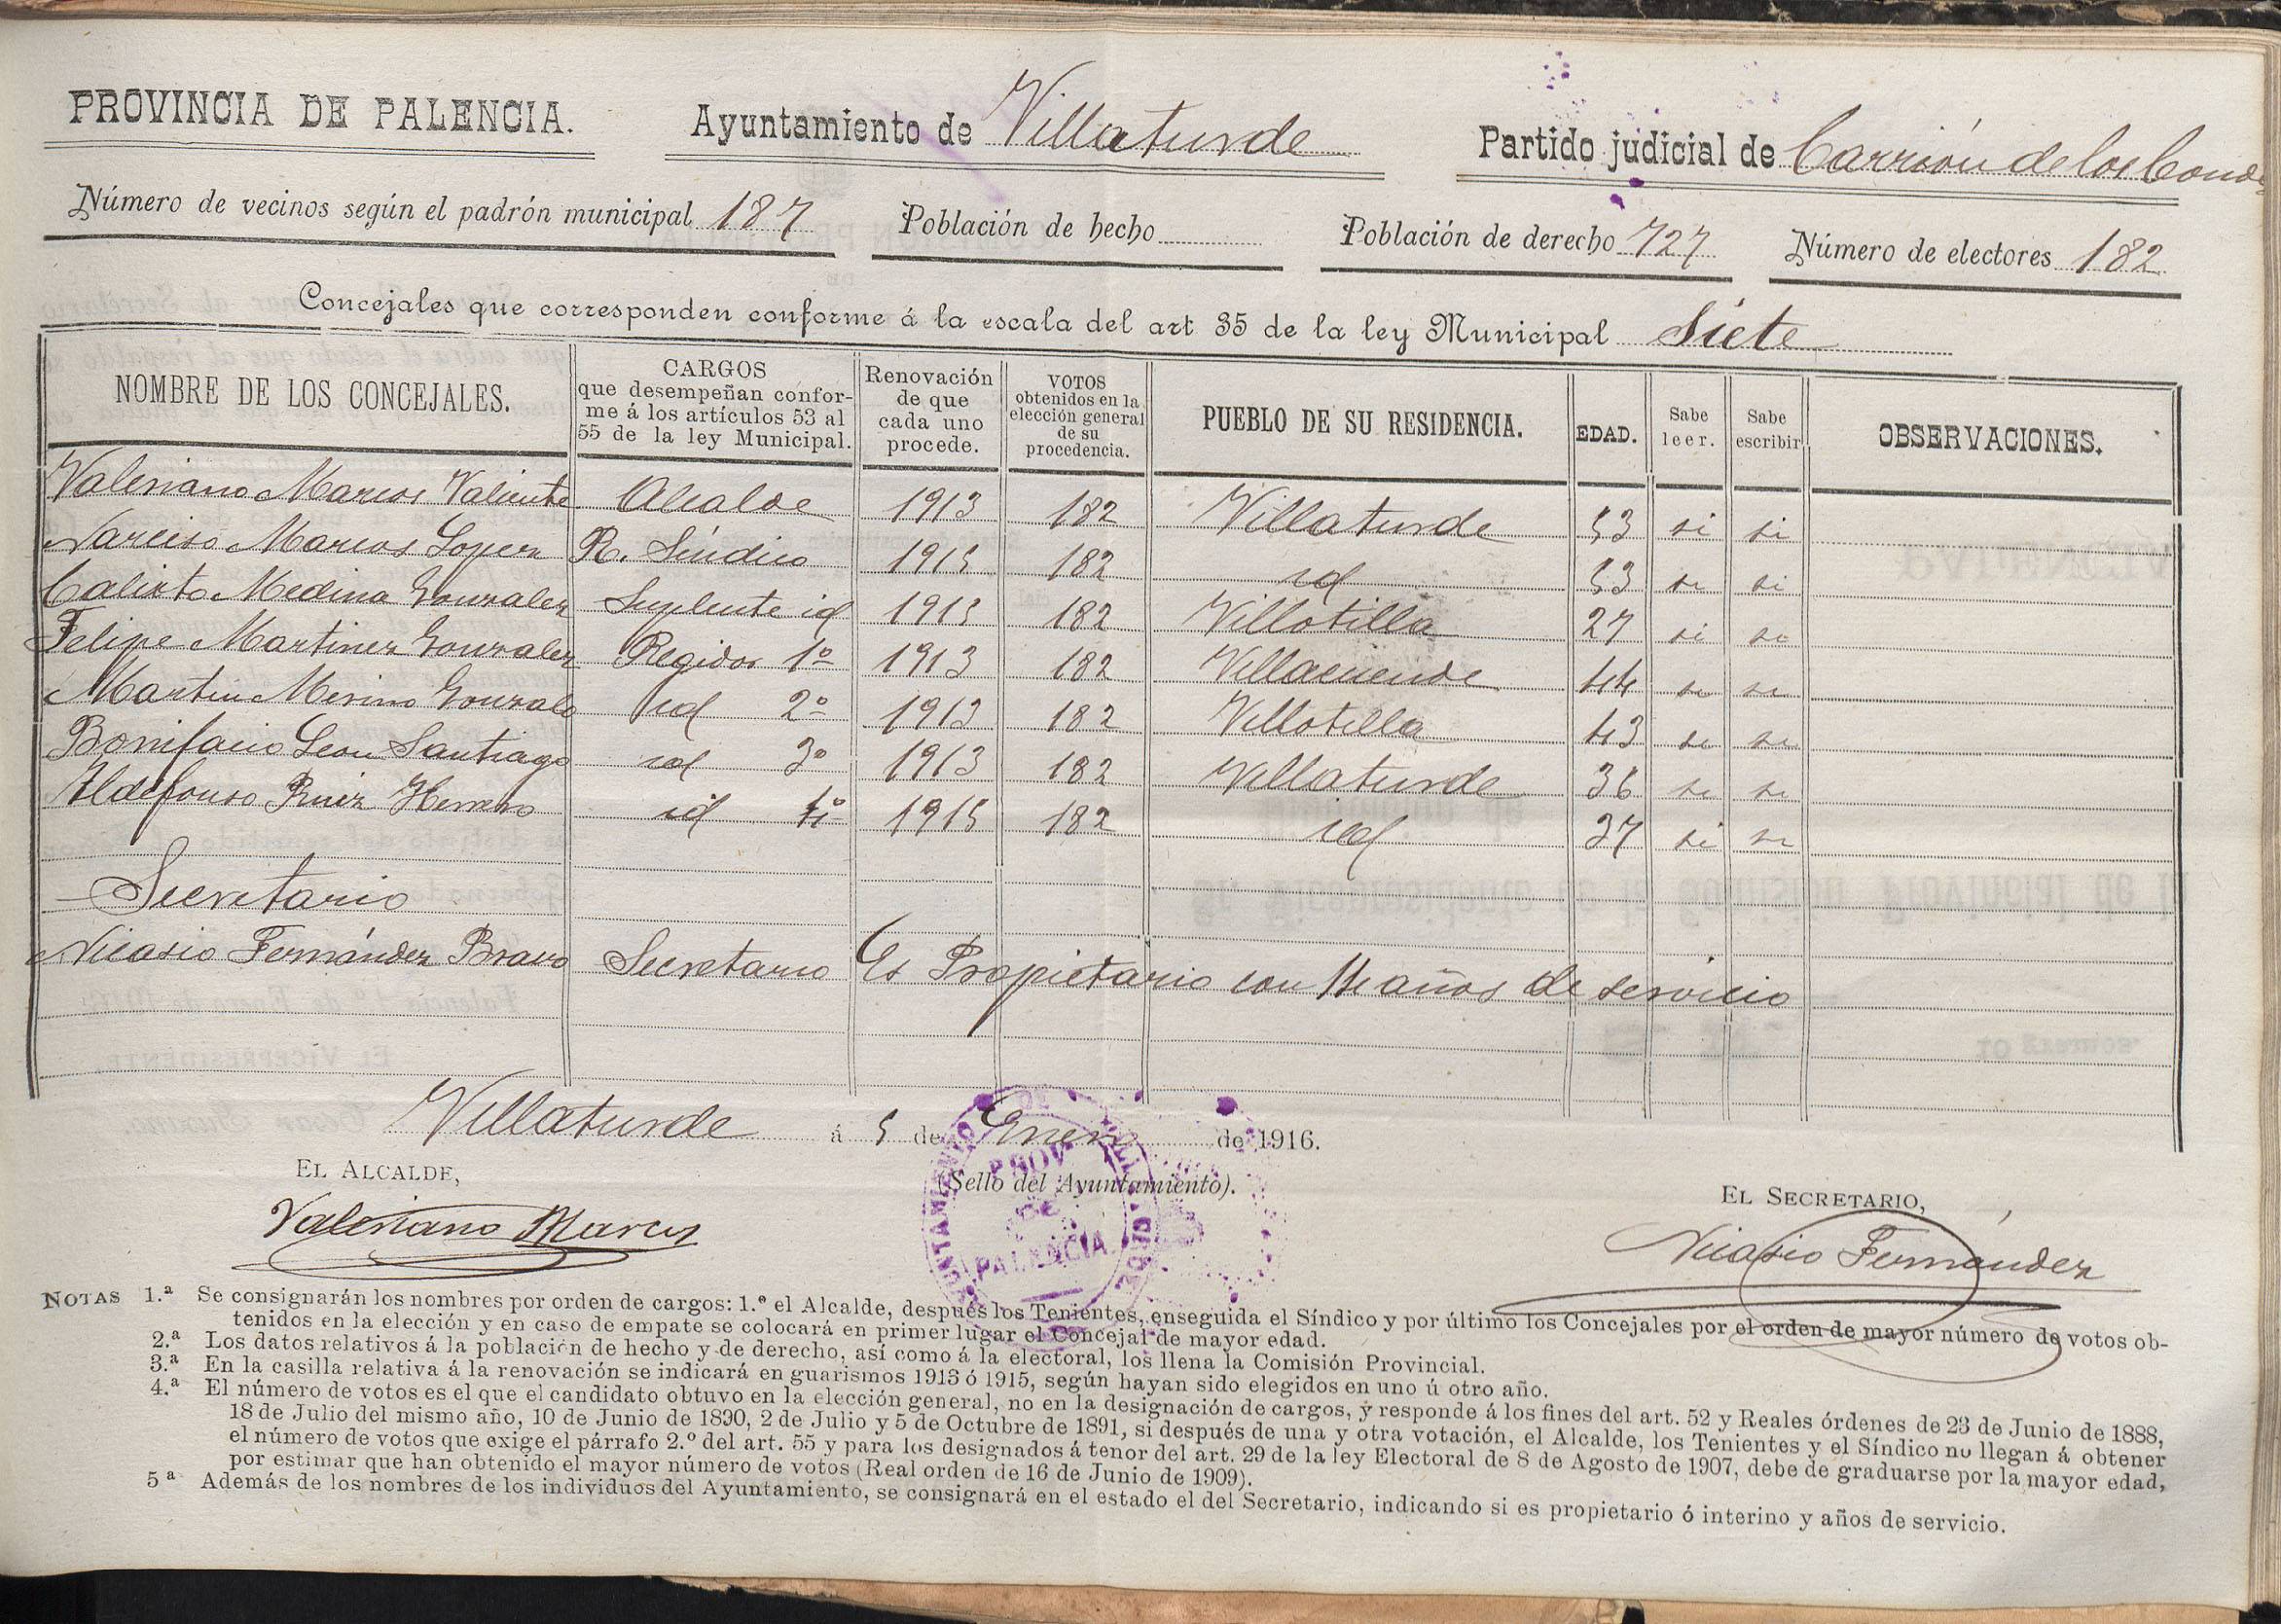 PROVINCIA DE PALENCIA. Ayuntamiento de Villaturde Partido judicial de Carrión de los Conde
Número de vecinos según el padrón municipal 187 Población de hecho Población de derecho 727 Número de electores 182
Concejales que corresponden conforme á la escala del art 35 de la ley Municipal Siete
NOMBRE DE LOS CONCEJALES. CARGOS que desempeñan confor- me á los artículos 53 al 55 de la ley Municipal. Renovación de que cada uno procede. VOTOS obtenidos en la elección general de su procedencia. PUEBLO DE SU RESIDENCIA. EDAD. Sabe leer. Sabe escribir OBSERVACIONES.
Valeriano Marcos Valiente Alcalde 1913 182 Villaturde 53 si si
Narciso Marcos Lopez R. Síndico 1915 182 id 53 si si
Calixto Medina Gonzalez Suplente id 1915 182 Villotilla 27 si si
Felipe Martinez Gonzalez Regidor 1º 1913 182 Villacuende 44 si si
Martin Merino Gonzalo id 2º 1913 182 Villotilla 43 si si
Bonifacio Leon Santiago id 3º 1913 182 Villaturde 36 si si
Ildefonso Ruiz Herrero id 4º 1915 182 id 37 si si
Secretario
Nicasio Fernández Bravo Secretario Es Propietario con 14 años de servicio
Villaturde á 5 de Enero de 1916.
EL ALCALDE, (Sello del Ayuntamiento). EL SECRETARIO,
Valeriano Marcos Nicasio Fernández
AYUNTAMIENTO DE VILLATURDE
PROV.
DE
PALENCIA
NOTAS 1.ª Se consignarán los nombres por orden de cargos: 1.º el Alcalde, después los Tenientes, enseguida el Síndico y por último los Concejales por el orden de mayor número de votos ob-
tenidos en la elección y en caso de empate se colocará en primer lugar el Concejal de mayor edad.
2.ª Los datos relativos á la población de hecho y de derecho, así como á la electoral, los llena la Comisión Provincial.
3.ª En la casilla relativa á la renovación se indicará en guarismos 1913 ó 1915, según hayan sido elegidos en uno ú otro año.
4.ª El número de votos es el que el candidato obtuvo en la elección general, no en la designación de cargos, y responde á los fines del art. 52 y Reales órdenes de 23 de Junio de 1888,
18 de Julio del mismo año, 10 de Junio de 1890, 2 de Julio y 5 de Octubre de 1891, si después de una y otra votación, el Alcalde, los Tenientes y el Síndico no llegan á obtener
el número de votos que exige el párrafo 2.º del art. 55 y para los designados á tenor del art. 29 de la ley Electoral de 8 de Agosto de 1907, debe de graduarse por la mayor edad,
por estimar que han obtenido el mayor número de votos (Real orden de 16 de Junio de 1909).
5ª Además de los nombres de los individuos del Ayuntamiento, se consignará en el estado el del Secretario, indicando si es propietario ó interino y años de servicio.